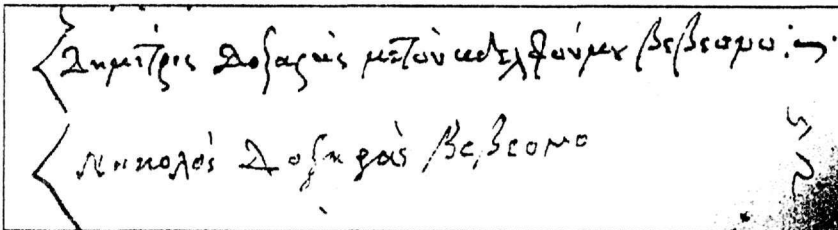 Δημίτρις Δοξαρὰς μετὸν αδελφόνμου βεβεόνο
Νηκολὸς Δοξαρὰς βεβεονο